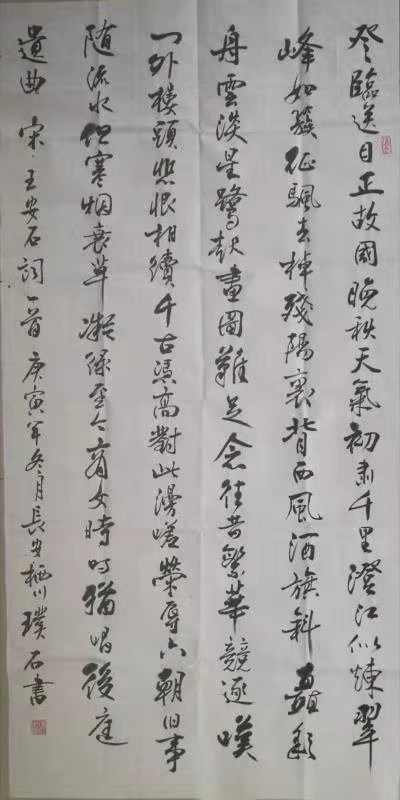 登臨送目正故國晚秋天氣初肅千里澄江似煉翠
峰如簇征颿去棹殘陽裏背西風酒旗斜矗彩
舟雲淡星鷺起畫圖難足念往昔繁華競逐嘆
门外樓頭悲恨相續千古憑高對此漫嗟榮辱六朝旧事
随流水但寒烟衰草凝綠至今商女時時猶唱後庭
遺曲 宋·王安石詞一首 庚寅年冬月長安栖川璞石書